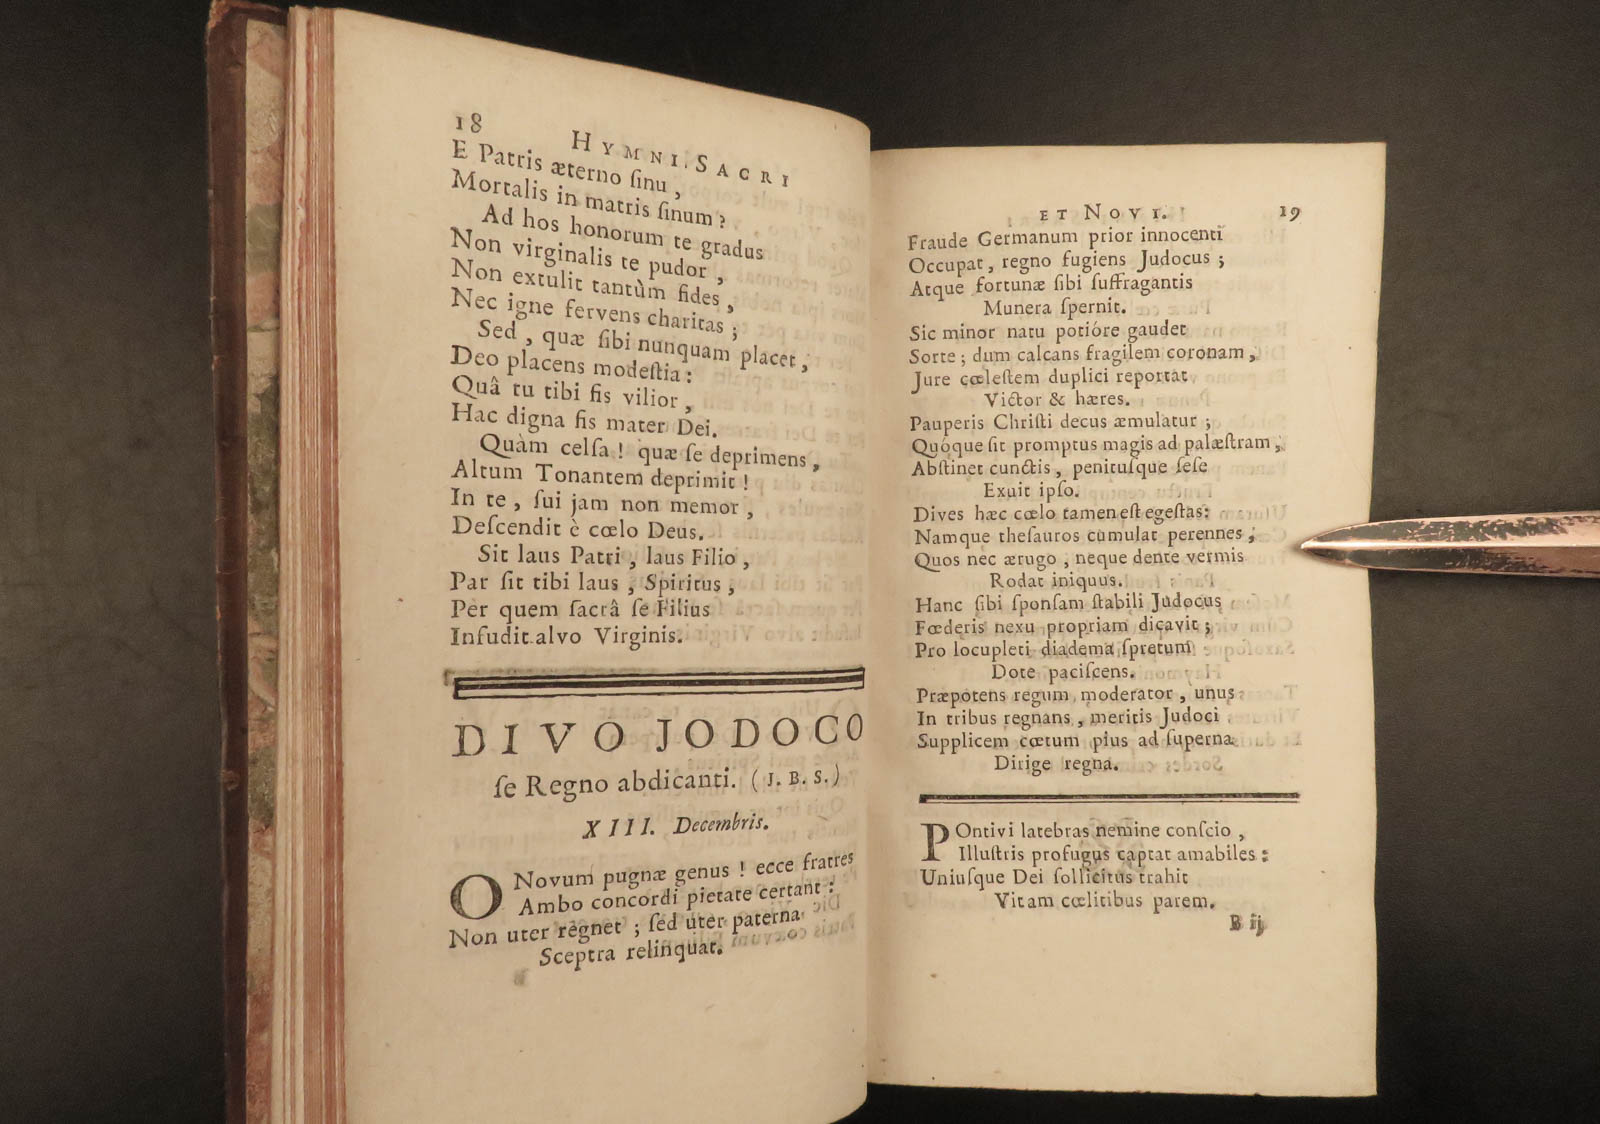 18
HYMNI SACRI
E Patris æterno ſinu,
Mortalis in matris ſinum?
Ad hos honorum te gradus
Non virginalis te pudor,
Non extulit tantùm fides,
Nec igne fervens charitas;
Sed, quæ ſibi nunquam placet,
Deo placens modeſtia:
Quâ tu tibi ſis vilior,
Hac digna ſis mater Dei.
Quàm celſa! quæ ſe deprimens,
Altum Tonantem deprimit!
In te, ſui jam non memor,
Deſcendit è cœlo Deus.
Sit laus Patri, laus Filio,
Par ſit tibi laus, Spiritus,
Per quem ſacrâ ſe Filius
Infudit alvo Virginis.
DIVO JODOCO
ſe Regno abdicanti. (J. B. S.)
XIII. Decembris.
O Novum pugnæ genus! ecce fratres
Ambo concordi pietate certant:
Non uter regnet; ſed uter paterna
Sceptra relinquat.
ET NOVI.
19
Fraude Germanum prior innocenti
Occupat, regno fugiens Judocus;
Atque fortunæ ſibi ſuffragantis
Munera ſpernit.
Sic minor natu potióre gaudet
Sorte; dum calcans fragilem coronam,
Jure cœleſtem duplici reportat
Victor & hæres.
Pauperis Chriſti decus æmulatur;
Quóque ſit promptus magis ad palæſtram,
Abſtinet cunctis, penituſque ſeſe
Exuit ipſo.
Dives hæc cœlo tamen eſt egeſtas:
Namque theſauros cumulat perennes;
Quos nec ærugo, neque dente vermis
Rodat iniquus.
Hanc ſibi ſponſam ſtabili Judocus
Fœderis nexu propriam dicavit;
Pro locupleti diadema ſpretum
Dote paciſcens.
Præpotens regum moderator, unus
In tribus regnans, meritis Judoci
Supplicem cœtum pius ad ſuperna
Dirige regna.
POntivi latebras nemine conſcio,
Illuſtris profugus captat amabiles:
Uniuſque Dei ſollicitus trahit
Vitam cœlitibus parem.
B ij